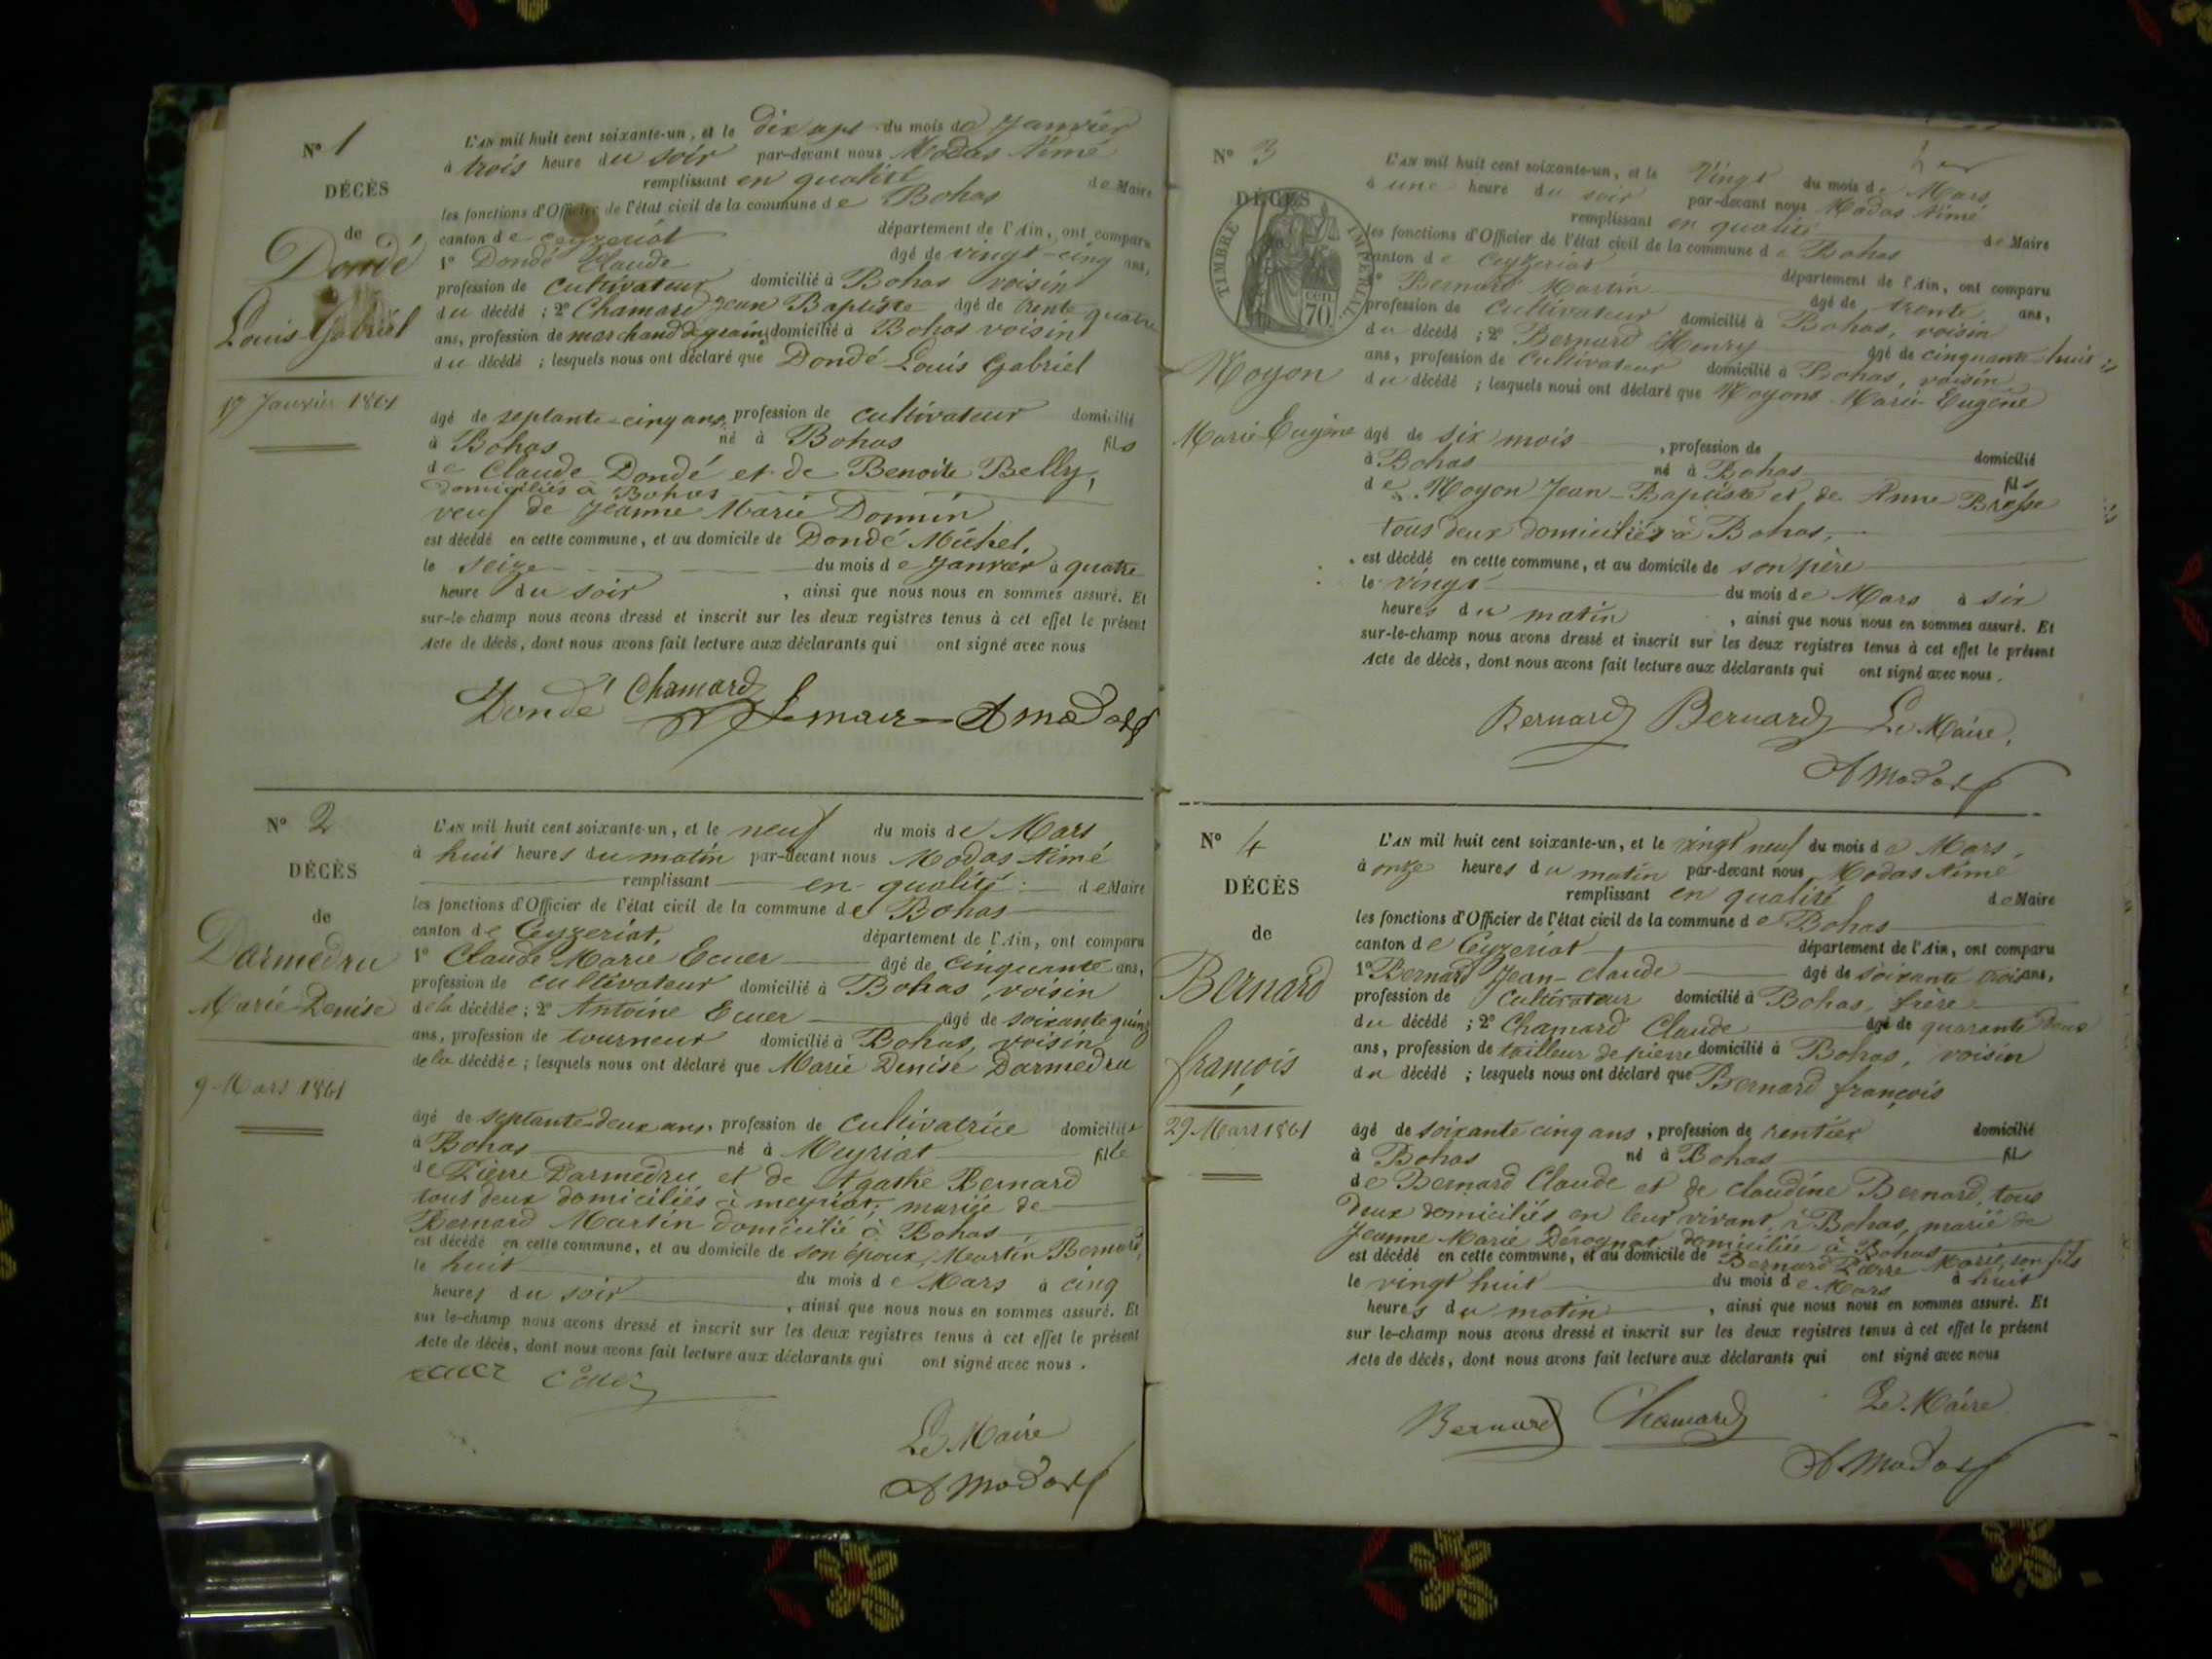 N° 1
DÉCÈS
de
Dondé
Louis Gabriel
17 Janvier 1861
L'AN mil huit cent soixante-un, et le dix sept du mois de Janvier
à trois heure du soir par-devant nous Modas Aimé
remplissant en qualité de Maire
les fonctions d'Officier de l'état civil de la commune de Bohas
canton de Ceyzeriat département de l'Ain, ont comparu
1° Dondé Claude âgé de vingt-cinq ans,
profession de cultivateur domicilié à Bohas voisin
du décédé ; 2° Chamard Jean Baptiste âgé de trente quatre
ans, profession de marchand de grains domicilié à Bohas voisin
du décédé ; lesquels nous ont déclaré que Dondé Louis Gabriel
âgé de septante-cinq ans, profession de cultivateur domicilié
à Bohas né à Bohas fils
de Claude Dondé et de Benoite Belly,
domiciliés à Bohas
veuf de Jeanne Marie Donnin
est décédé en cette commune, et au domicile de Dondé Michel,
le seize du mois de Janvier à quatre
heure du soir , ainsi que nous nous en sommes assuré. Et
sur-le-champ nous avons dressé et inscrit sur les deux registres tenus à cet effet le présent
Acte de décès, dont nous avons fait lecture aux déclarants qui ont signé avec nous
Dondé Chamard Le maire A Modas
N° 2
DÉCÈS
de
Darmedru
Marie-Denise
9 Mars 1861
L'AN mil huit cent soixante-un, et le neuf du mois de Mars
à huit heures du matin par-devant nous Modas Aimé
remplissant en qualité de Maire
les fonctions d'Officier de l'état civil de la commune de Bohas
canton de Ceyzeriat, département de l'Ain, ont comparu
1° Claude Marie Ecuer âgé de cinquante ans,
profession de cultivateur domicilié à Bohas, voisin
de la décédée ; 2° Antoine Ecuer âgé de soixante quinze
ans, profession de tourneur domicilié à Bohas, voisin
de la décédée ; lesquels nous ont déclaré que Marie Denise Darmedru
âgé de septante-deux ans, profession de cultivatrice domiciliée
à Bohas né à Meyriat fille
de Pierre Darmedru et de Agathe Bernard
tous deux domiciliés à meyriat, mariée de
Bernard Martin domicilié à Bohas
est décédé en cette commune, et au domicile de son époux, Martin Bernard,
le huit du mois de Mars à cinq
heures du soir , ainsi que nous nous en sommes assuré. Et
sur le-champ nous avons dressé et inscrit sur les deux registres tenus à cet effet le présent
Acte de décès, dont nous avons fait lecture aux déclarants qui ont signé avec nous.
Le Maire
A Modas
N° 3
DÉCÈS
TIMBRE IMPERIAL
70 cen
Moyon
Marie Eugène
L'AN mil huit cent soixante-un, et le Vingt du mois de Mars
à une heure du soir par-devant nous Modas Aimé
remplissant en qualité de Maire
les fonctions d'Officier de l'état civil de la commune de Bohas
canton de Ceyzeriat département de l'Ain, ont comparu
1° Bernard Martin âgé de trente ans,
profession de Cultivateur domicilié à Bohas, voisin
du décédé ; 2° Bernard Henry âgé de cinquante-huit
ans, profession de Cultivateur domicilié à Bohas, voisin
du décédé ; lesquels nous ont déclaré que Moyons Marie Eugène
âgé de six mois , profession de domicilié
à Bohas né à Bohas fils
de Moyon Jean-Baptiste et de Anne Bresse
tous deux domiciliés à Bohas,
est décédé en cette commune, et au domicile de son père
le vingt du mois de Mars à six
heures du matin , ainsi que nous nous en sommes assuré. Et
sur-le-champ nous avons dressé et inscrit sur les deux registres tenus à cet effet le présent
Acte de décès, dont nous avons fait lecture aux déclarants qui ont signé avec nous.
Bernard Bernard Le Maire,
A Modas
N° 4
DÉCÈS
de
Bernard
françois
29 Mars 1861
L'AN mil huit cent soixante-un, et le vingt neuf du mois de Mars,
à onze heures du matin par-devant nous Modas Aimé
remplissant en qualité de Maire
les fonctions d'Officier de l'état civil de la commune de Bohas
canton de Ceyzeriat département de l'Ain, ont comparu
1° Bernard Jean-claude âgé de soixante trois ans,
profession de Cultivateur domicilié à Bohas, frère
du décédé ; 2° Chamard Claude âgé de quarante Deux
ans, profession de tailleur de pierre domicilié à Bohas, voisin
du décédé ; lesquels nous ont déclaré que Bernard françois
âgé de soixante cinq ans, profession de rentier domicilié
à Bohas né à Bohas fils
de Bernard Claude et de claudine Bernard, tous
Deux domiciliés en leur vivant, à Bohas, marié de
Jeanne Marie Derognat domiciliée à Bohas
est décédé en cette commune, et au domicile de Bernard Pierre Marie, son fils
le vingt huit du mois de Mars à huit
heures du matin , ainsi que nous nous en sommes assuré. Et
sur le-champ nous avons dressé et inscrit sur les deux registres tenus à cet effet le présent
Acte de décès, dont nous avons fait lecture aux déclarants qui ont signé avec nous
Bernard Chamard Le Maire
A Modas